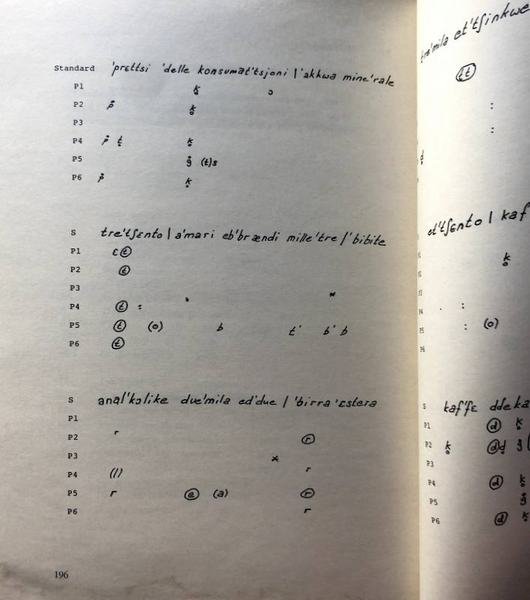 Standard 'prɛttsi 'delle konsumat'tsjoni | 'akkwa mine'rale
P1 k̬ ɔ
P2 k̬
P3
P4
P5 g̊ (t)s
P6 k̬
S tre'tʃɛnto | a'mari eb'brændi mille'tre | 'bibite
P1 ɛ ⓣ
P2 ⓣ
P3
P4 ⓣ :
P5 ⓣ (o) b t' b' b
P6 ⓣ
S anal'kɔlike due'mila ed'due | 'birra 'ɛstera
P1
P2 r ⓡ
P3 *
P4 (l) r
P5 r ⓔ (a) ⓡ
P6 r
196
et'tʃinkwe
:
:
et'tʃɛnto | kaf
k̬
:
: (o)
S kaf'fɛ ddeka
P1 ⓓ k̬
P2 k̬
P3
P4 ⓓ k̬
P5 g̊
P6 ⓓ k̬